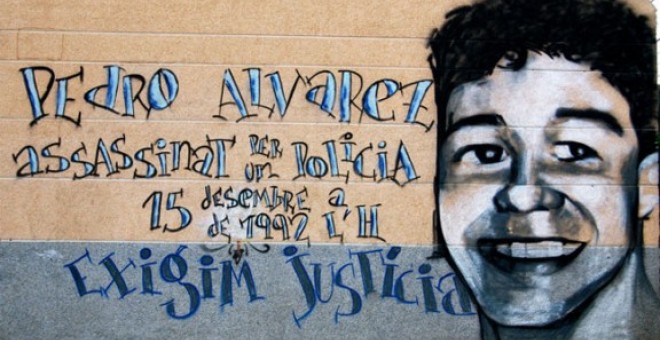 PEdRO ALVAREZ
ASSASSINAT PER UN POLICIA
15 desembre de 1992 a l'H
EXIGIM JUSTÍCIA